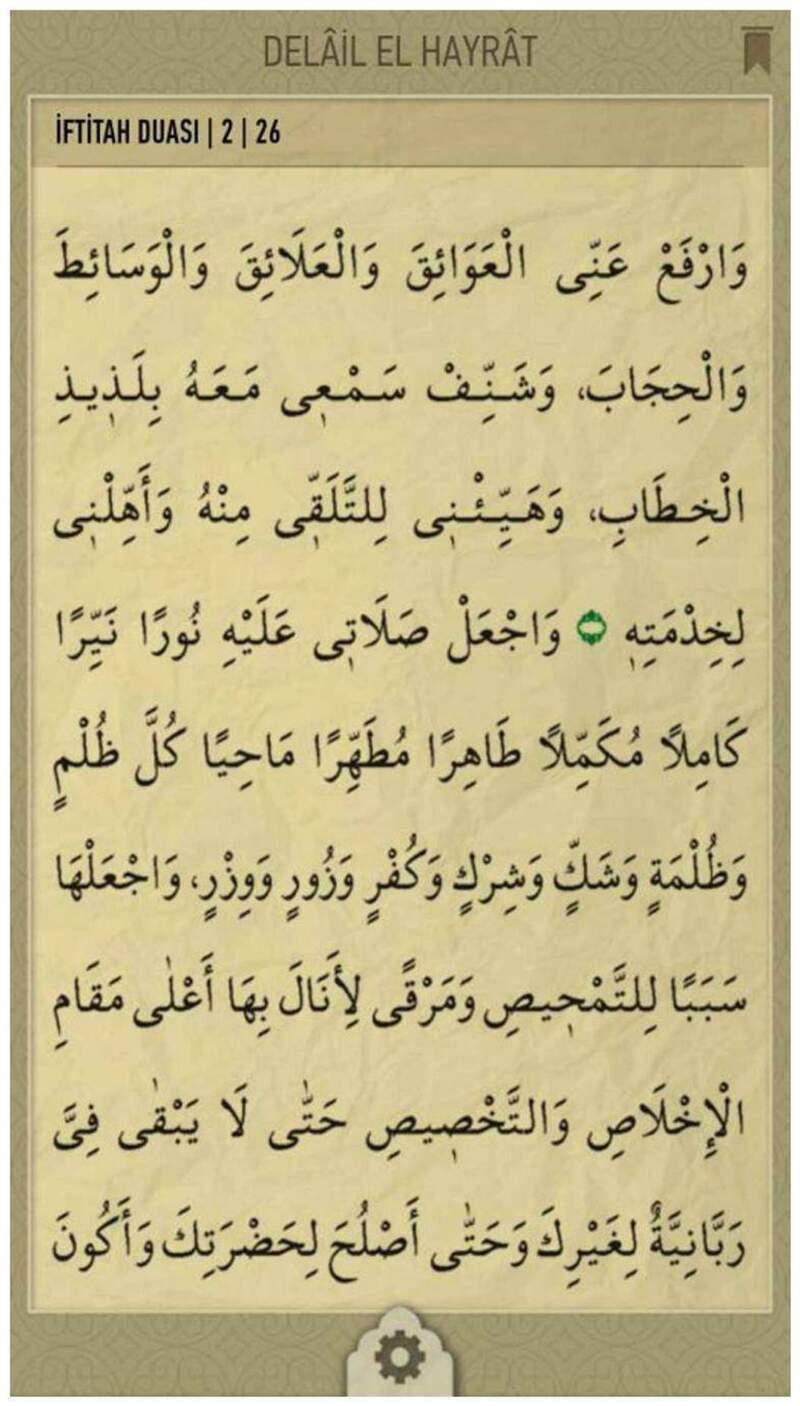 DELÂİL EL HAYRÂT
İFTİTAH DUASI | 2 | 26
وَارْفَعْ عَنِّى الْعَوَائِقَ وَالْعَلَائِقَ وَالْوَسَائِطَ
وَالْحِجَابَ، وَشَنِّفْ سَمْعٖى مَعَهُ بِلَذٖيذِ
الْخِطَابِ، وَهَيِّئْنٖى لِلتَّلَقّٖى مِنْهُ وَأَهِّلْنٖى
لِخِدْمَتِهٖ ۝ وَاجْعَلْ صَلَاتٖى عَلَيْهِ نُورًا نَيِّرًا
كَامِلاً مُكَمِّلاً طَاهِرًا مُطَهِّرًا مَاحِيًا كُلَّ ظُلْمٍ
وَظُلْمَةٍ وَشَكٍّ وَشِرْكٍ وَكُفْرٍ وَزُورٍ وَوِزْرٍ، وَاجْعَلْهَا
سَبَبًا لِلتَّمْحٖيصِ وَمَرْقًى لِأَنَالَ بِهَا أَعْلٰى مَقَامِ
الْإِخْلَاصِ وَالتَّخْصٖيصِ حَتّٰى لَا يَبْقٰى فِىَّ
رَبَّانِيَّةٌ لِغَيْرِكَ وَحَتّٰى أَصْلُحَ لِحَضْرَتِكَ وَأَكُونَ